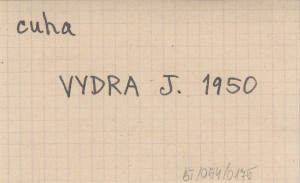 cuha
VYDRA J. 1950
BI/054/0175